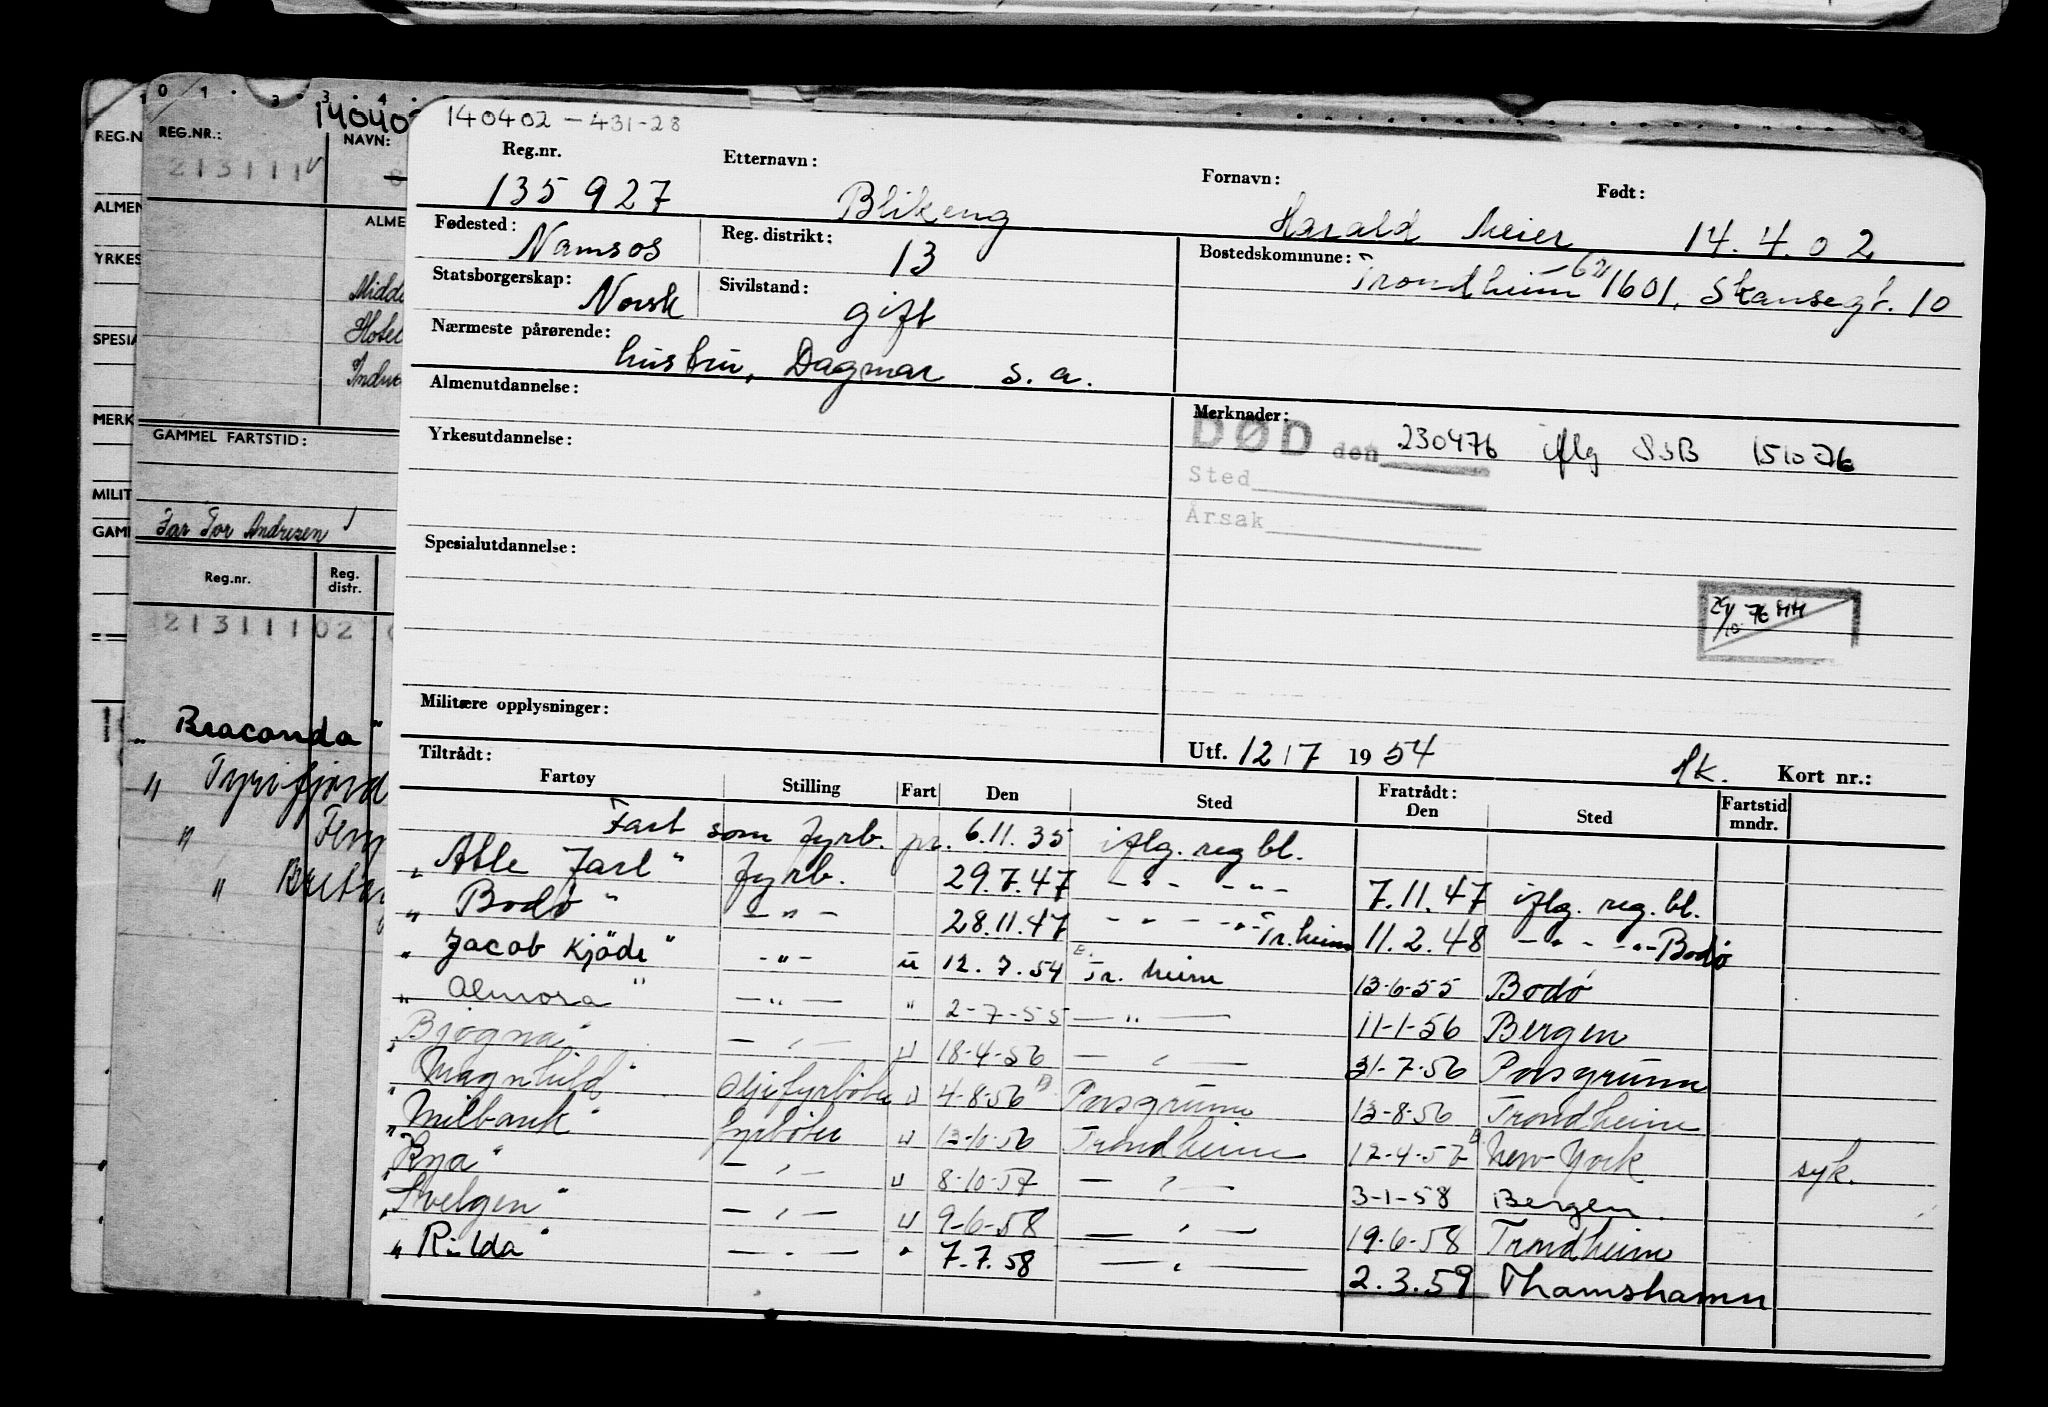 REG.N
ALMEN
YRKES
SPESIA
MERK
MILIT
GAM
0 1 3 3 4
14040
REG.NR.: NAVN:
213111
ALME
Midd
Hotel
Indu
GAMMEL FARTSTID:
Far Tor Andresen
Reg.nr. Reg. distr.
21311102
„ Braconda"
" Tyrifjord
"
"
140402 - 431-28
Reg.nr. Etternavn: Fornavn: Født:
135927 Blikeng Harald Meier 14.4.02
Fødested: Namsos Reg. distrikt: 13 Bostedskommune: Trondheim 1601, Skansegt. 10
Statsborgerskap: Norsk Sivilstand: gift
Nærmeste pårørende: hustru, Dagmar s.a.
Almenutdannelse: Merknader:
DØD den 230476 iflg SSB 151076
Yrkesutdannelse:
Sted
Årsak
Spesialutdannelse:
29/10 76 MM
Militære opplysninger:
Utf. 12/7 1954 Kort nr.:
Tiltrådt: Fratrådt:
Fartøy Stilling Fart Den Sted Den Sted Fartstid mndr.
Fart som fyrb. pr. 6.11.35 iflg. reg bl.
„ Atle Jarl" fyrb. 29.7.47 - " - - " - 7.11.47 iflg. reg. bl.
„ Bodø" - " - 28.11.47 - " - - " - Tr.heim 11.2.48 - " - - " - Bodø
„ Jacob Kjøde" - " - u 12.7.54 Tr.heim 13-6-55 Bodø
„ Almora" - " - " 2-7-55 - " - 11-1-56 Bergen
„ Bjøgna" - " - u 18-4-56 - " - 31-7-56 Porsgrunn
„ Magnhild" Oljefyrbøter u 4-8-56 Porsgrunn 13-8-56 Trondheim
„ Milbank" fyrbøter u 13-10-56 Trondheim 12-4-57 New York syk.
„ Rya" - " - u 8-10-57 - " - 3-1-58 Bergen
„ Svelgen" - " - u 9-6-58 - " - 19-6-58 Trondheim
„ Rilda" - " - " 7.7.58 - " - 2.3.59 Thamshamn